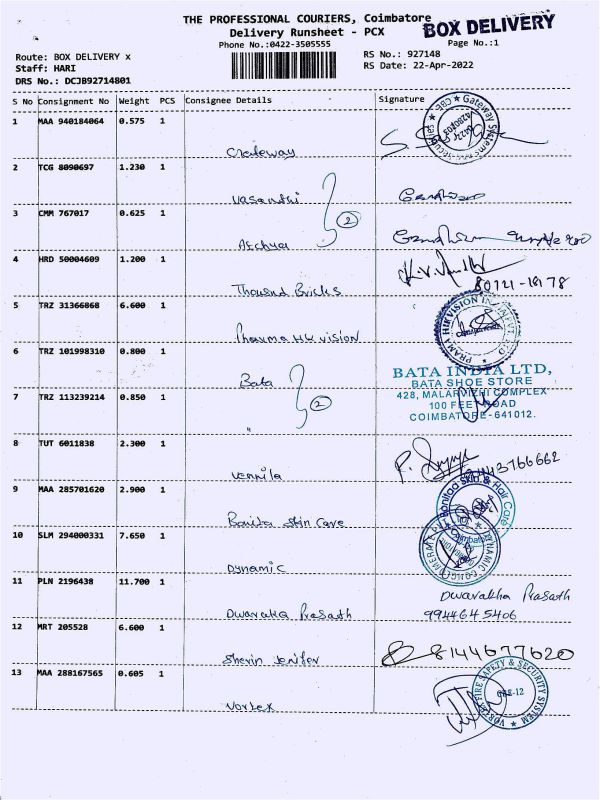 THE PROFESSIONAL COURIERS, Coimbatore
BOX DELIVERY
Delivery Runsheet - PCX
Phone No.:0422-3505555
Page No.:1
Route: BOX DELIVERY x
RS No.: 927148
Staff: HARI
RS Date: 22-Apr-2022
DRS No.: DCJB92714801
S No Consignment No Weight PCS Consignee Details Signature
1 MAA 940184064 0.575 1
Gateway Systems
2 TCG 8090697 1.230 1
Vasanthi
2
3 CMM 767017 0.625 1
4 HRD 50004609 1.200 1
Thousand Bricks
80721-18178
5 TRZ 31366868 6.600 1
Phavma HK vision
HIKVISION
6 TRZ 101998310 0.800 1
Bata
BATA INDIA LTD,
BATA SHOE STORE
7 TRZ 113239214 0.850 1
428, MALARVIZHI COMPLEX
2
100 FEET ROAD
COIMBATORE-641012.
"
8 TUT 6011838 2.300 1
Vennila
9 MAA 285701620 2.900 1
Bonita Skin Care
Skin & Hair Care
10 SLM 294000331 7.650 1
Dynamic
11 PLN 2196438 11.700 1
Dwaraka Prasath
Dwarakha Prasath
9944645406
12 MRT 205528 6.600 1
Sherin Jenifer
8144677620
13 MAA 288167565 0.605 1
Vortex
VORTEX FIRE SAFETY & SECURITY SYSTEM
CBE-12